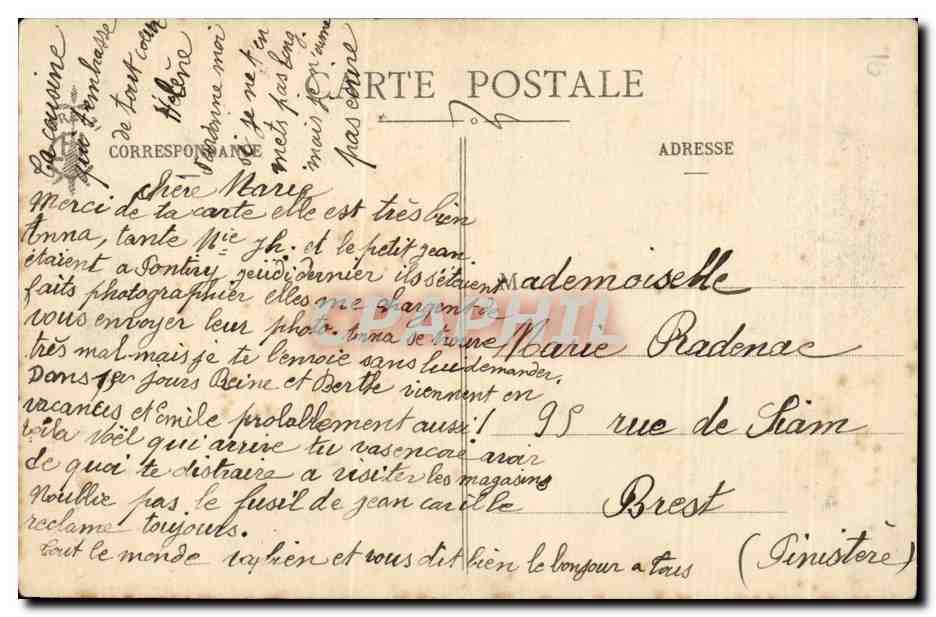 CARTE POSTALE
CORRESPONDANCE
ADRESSE
Chère Marie
Merci de ta carte elle est très bien
Anna, tante Nie Jh. et le petit jean
étaient a Pontivy jeudi dernier ils s'étaient
faits photographier elles me chargent de
vous envoyer leur photo. Anna se trouve
très mal mais je te l'envoie sans lui demander.
Dans jours Reine et Berthe viennent en
vacances et Emile probablement aussi!
voila Noël qui arrive tu vas encore avoir
de quoi te distraire a visiter les magasins
Noublie pas le fusil de jean car ille
reclame toujours.
tout le monde va bien et vous dit bien le bonjour a tous
Ta cousine
qui t'embrasse
de tout coeur
Hélène
Pardonne moi
si je ne t'en
mets pas long.
mais je n'aime
pas ecrire
Mademoiselle
Marie Radenac
95 rue de Siam
Brest
(Finistère)
CPAPHIL